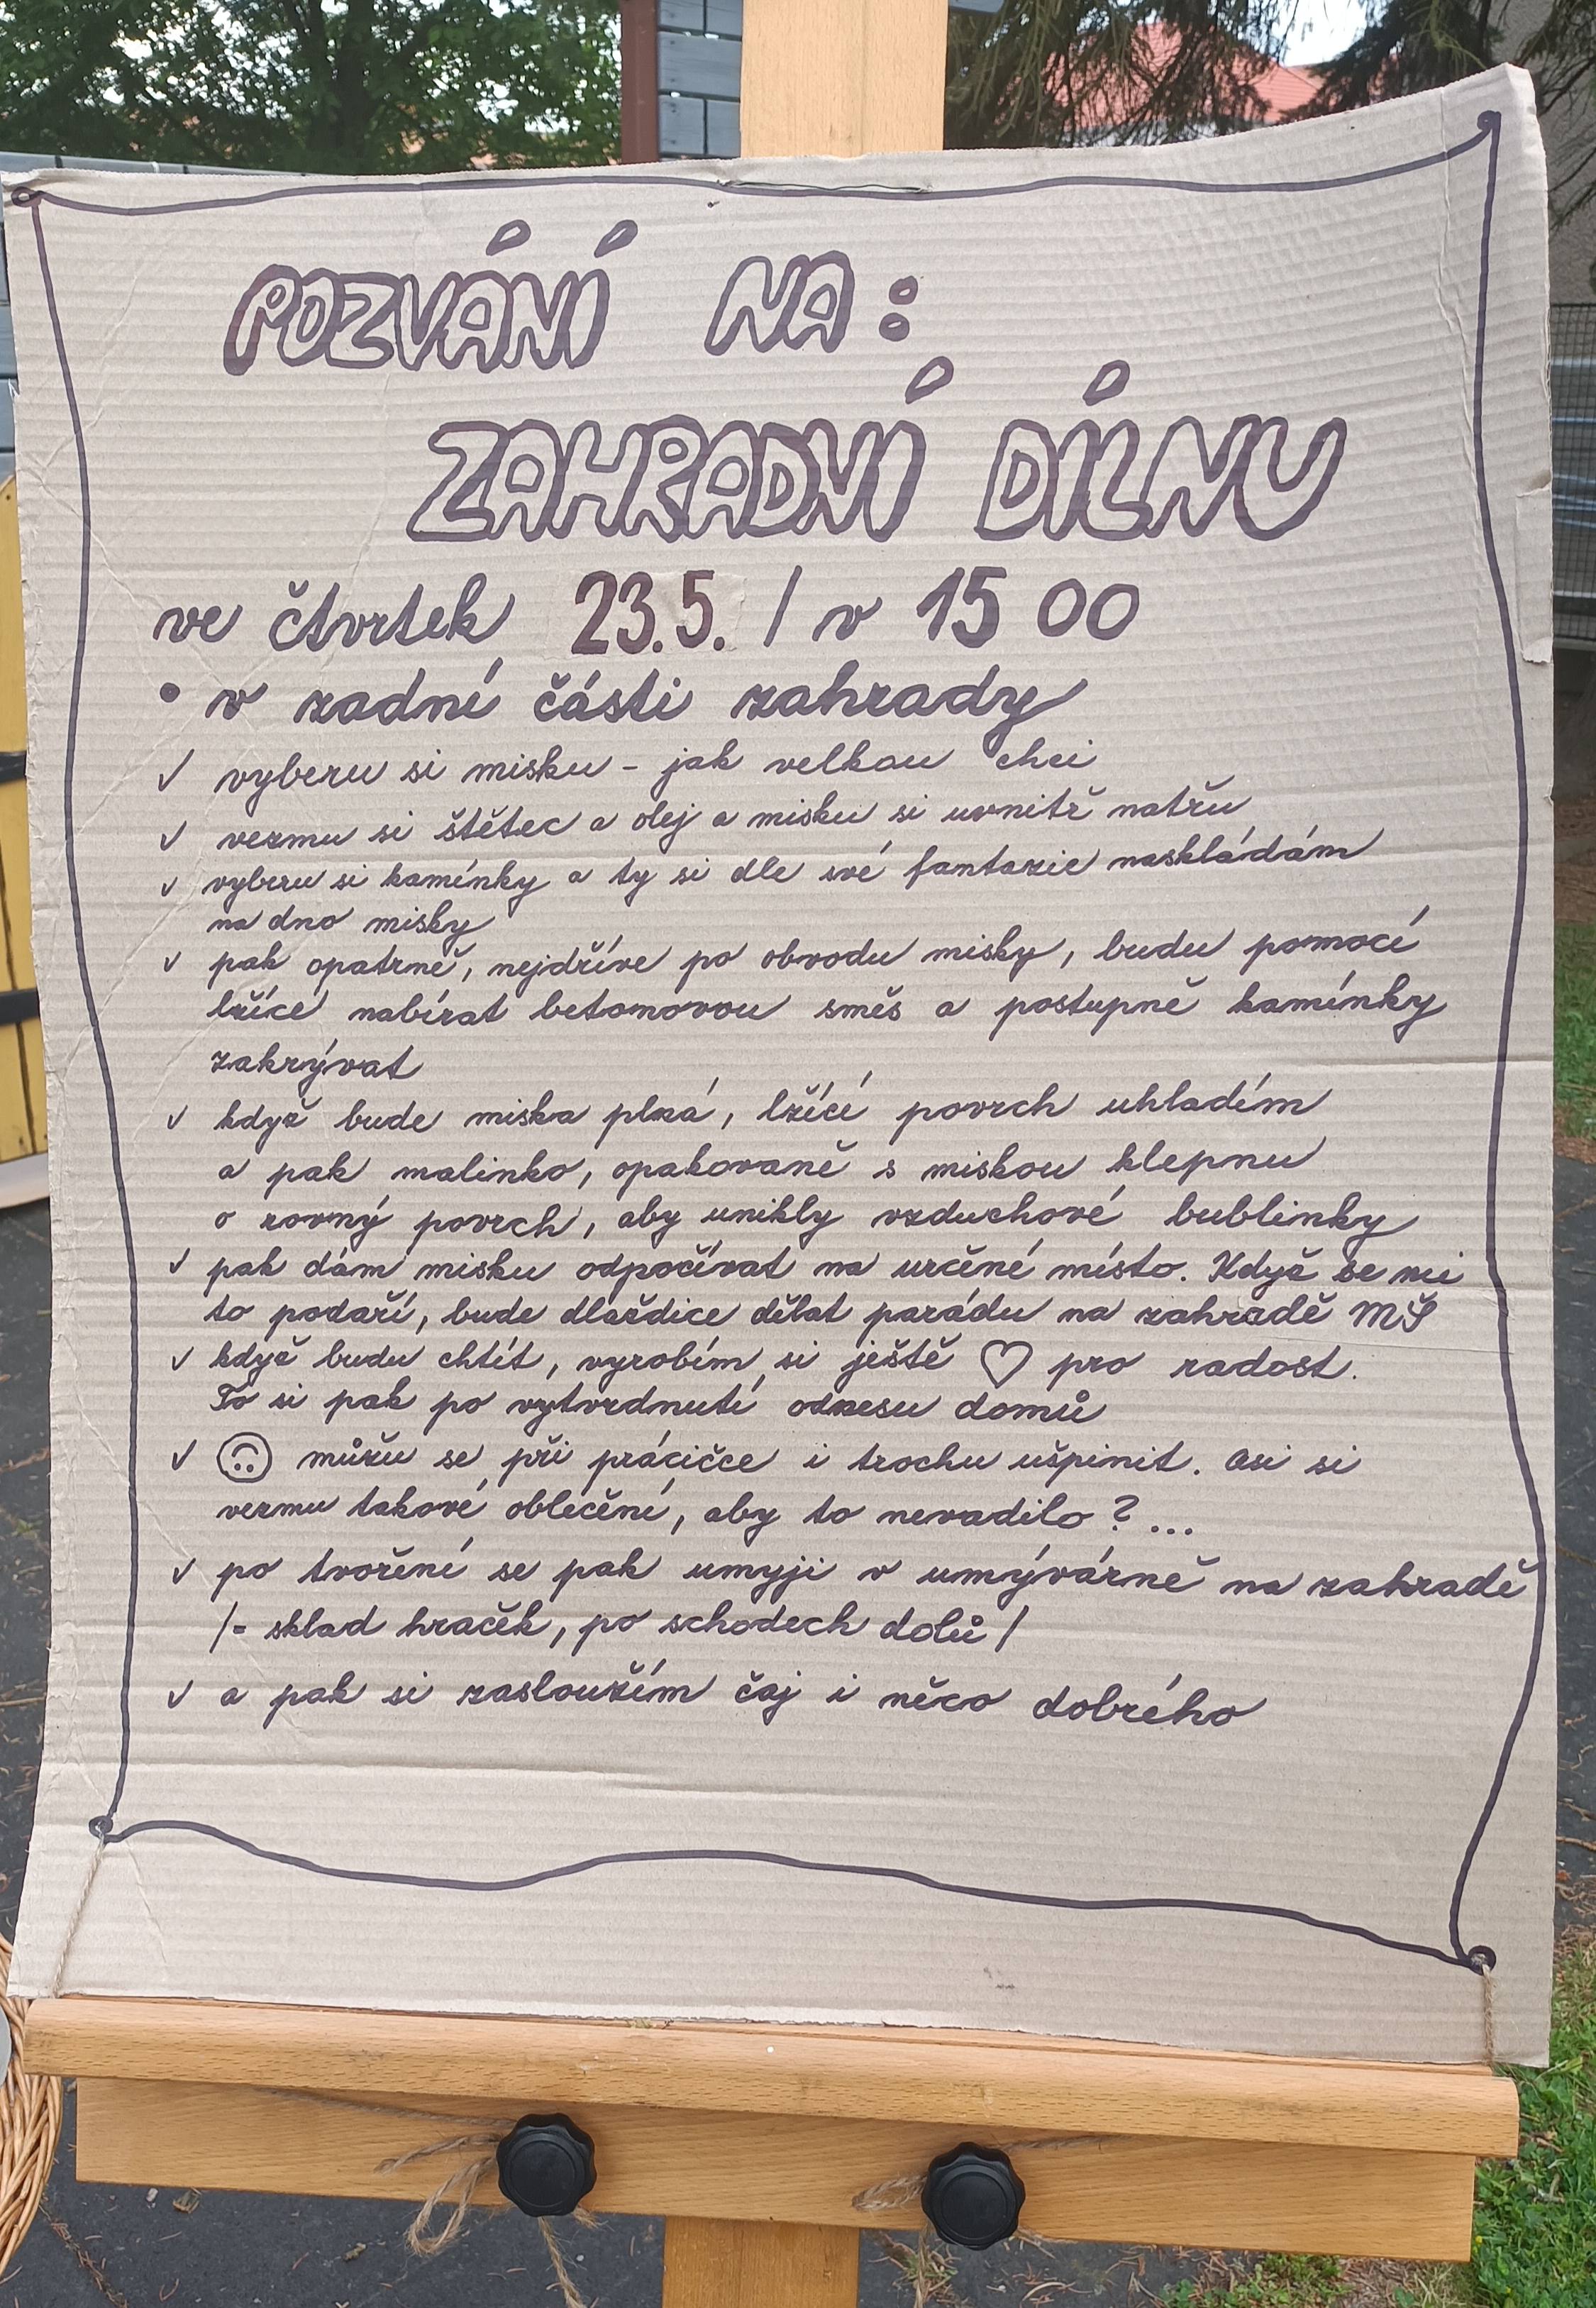 POZVÁNÍ NA:
ZAHRADNÍ DÍLNU
ve čtvrtek 23.5. / v 15 00
• v zadní části zahrady
✓ vyberu si misku - jak velkou chci
✓ vezmu si štětec a olej a misku si uvnitř natřu
✓ vyberu si kamínky a ty si dle své fantazie naskládám
na dno misky
✓ pak opatrně, nejdříve po obvodu misky, budu pomocí
lžíce nabírat betonovou směs a postupně kamínky
zakrývat
✓ když bude miska plná, lžící povrch uhladím
a pak malinko, opakovaně s miskou klepnu
o rovný povrch, aby unikly vzduchové bublinky
✓ pak dám misku odpočívat na určené místo. Když se mi
to podaří, bude dlaždice dělat parádu na zahradě MŠ
✓ když budu chtít, vyrobím si ještě ♡ pro radost.
To si pak po vytvrdnutí odnesu domů
✓ ☹ můžu se při prácičce i trochu ušpinit. Asi si
vezmu takové oblečení, aby to nevadilo? ...
✓ po tvoření se pak umyji v umývárně na zahradě
/= sklad hraček, po schodech dolů/
✓ a pak si zasloužím čaj i něco dobrého